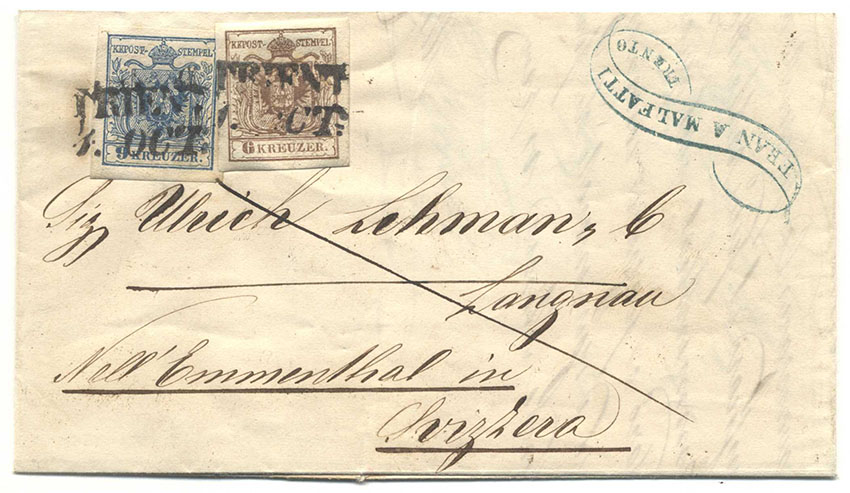 KKPOST-STEMPEL
9 KREUZER.
KKPOST-STEMPEL
6 KREUZER.
TRIENT
1. OCT.
TRIENT
1. OCT.
FRAN A MALFATTI
TRENTO
Sig Ulrich Lehman, C
Langnau
Nell' Emmenthal in
Svizzera